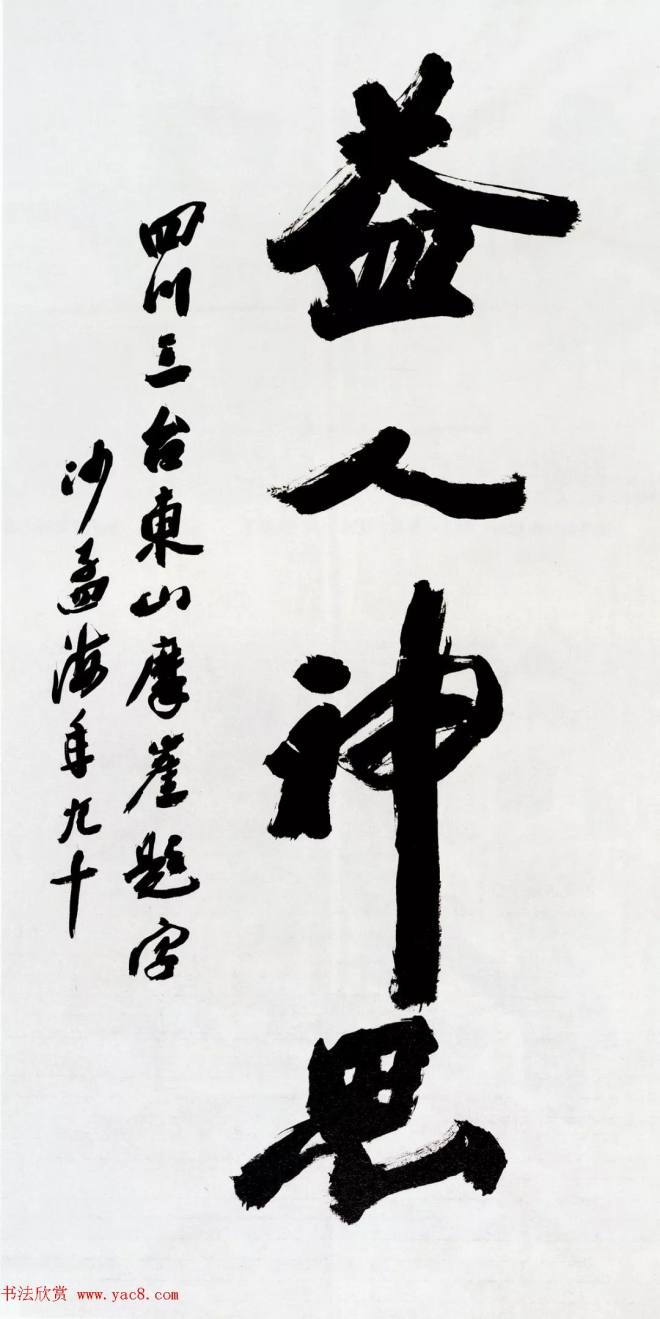 益人神思
四川三台東山摩崖題字
沙孟海年九十
书法欣赏 www.yac8.com